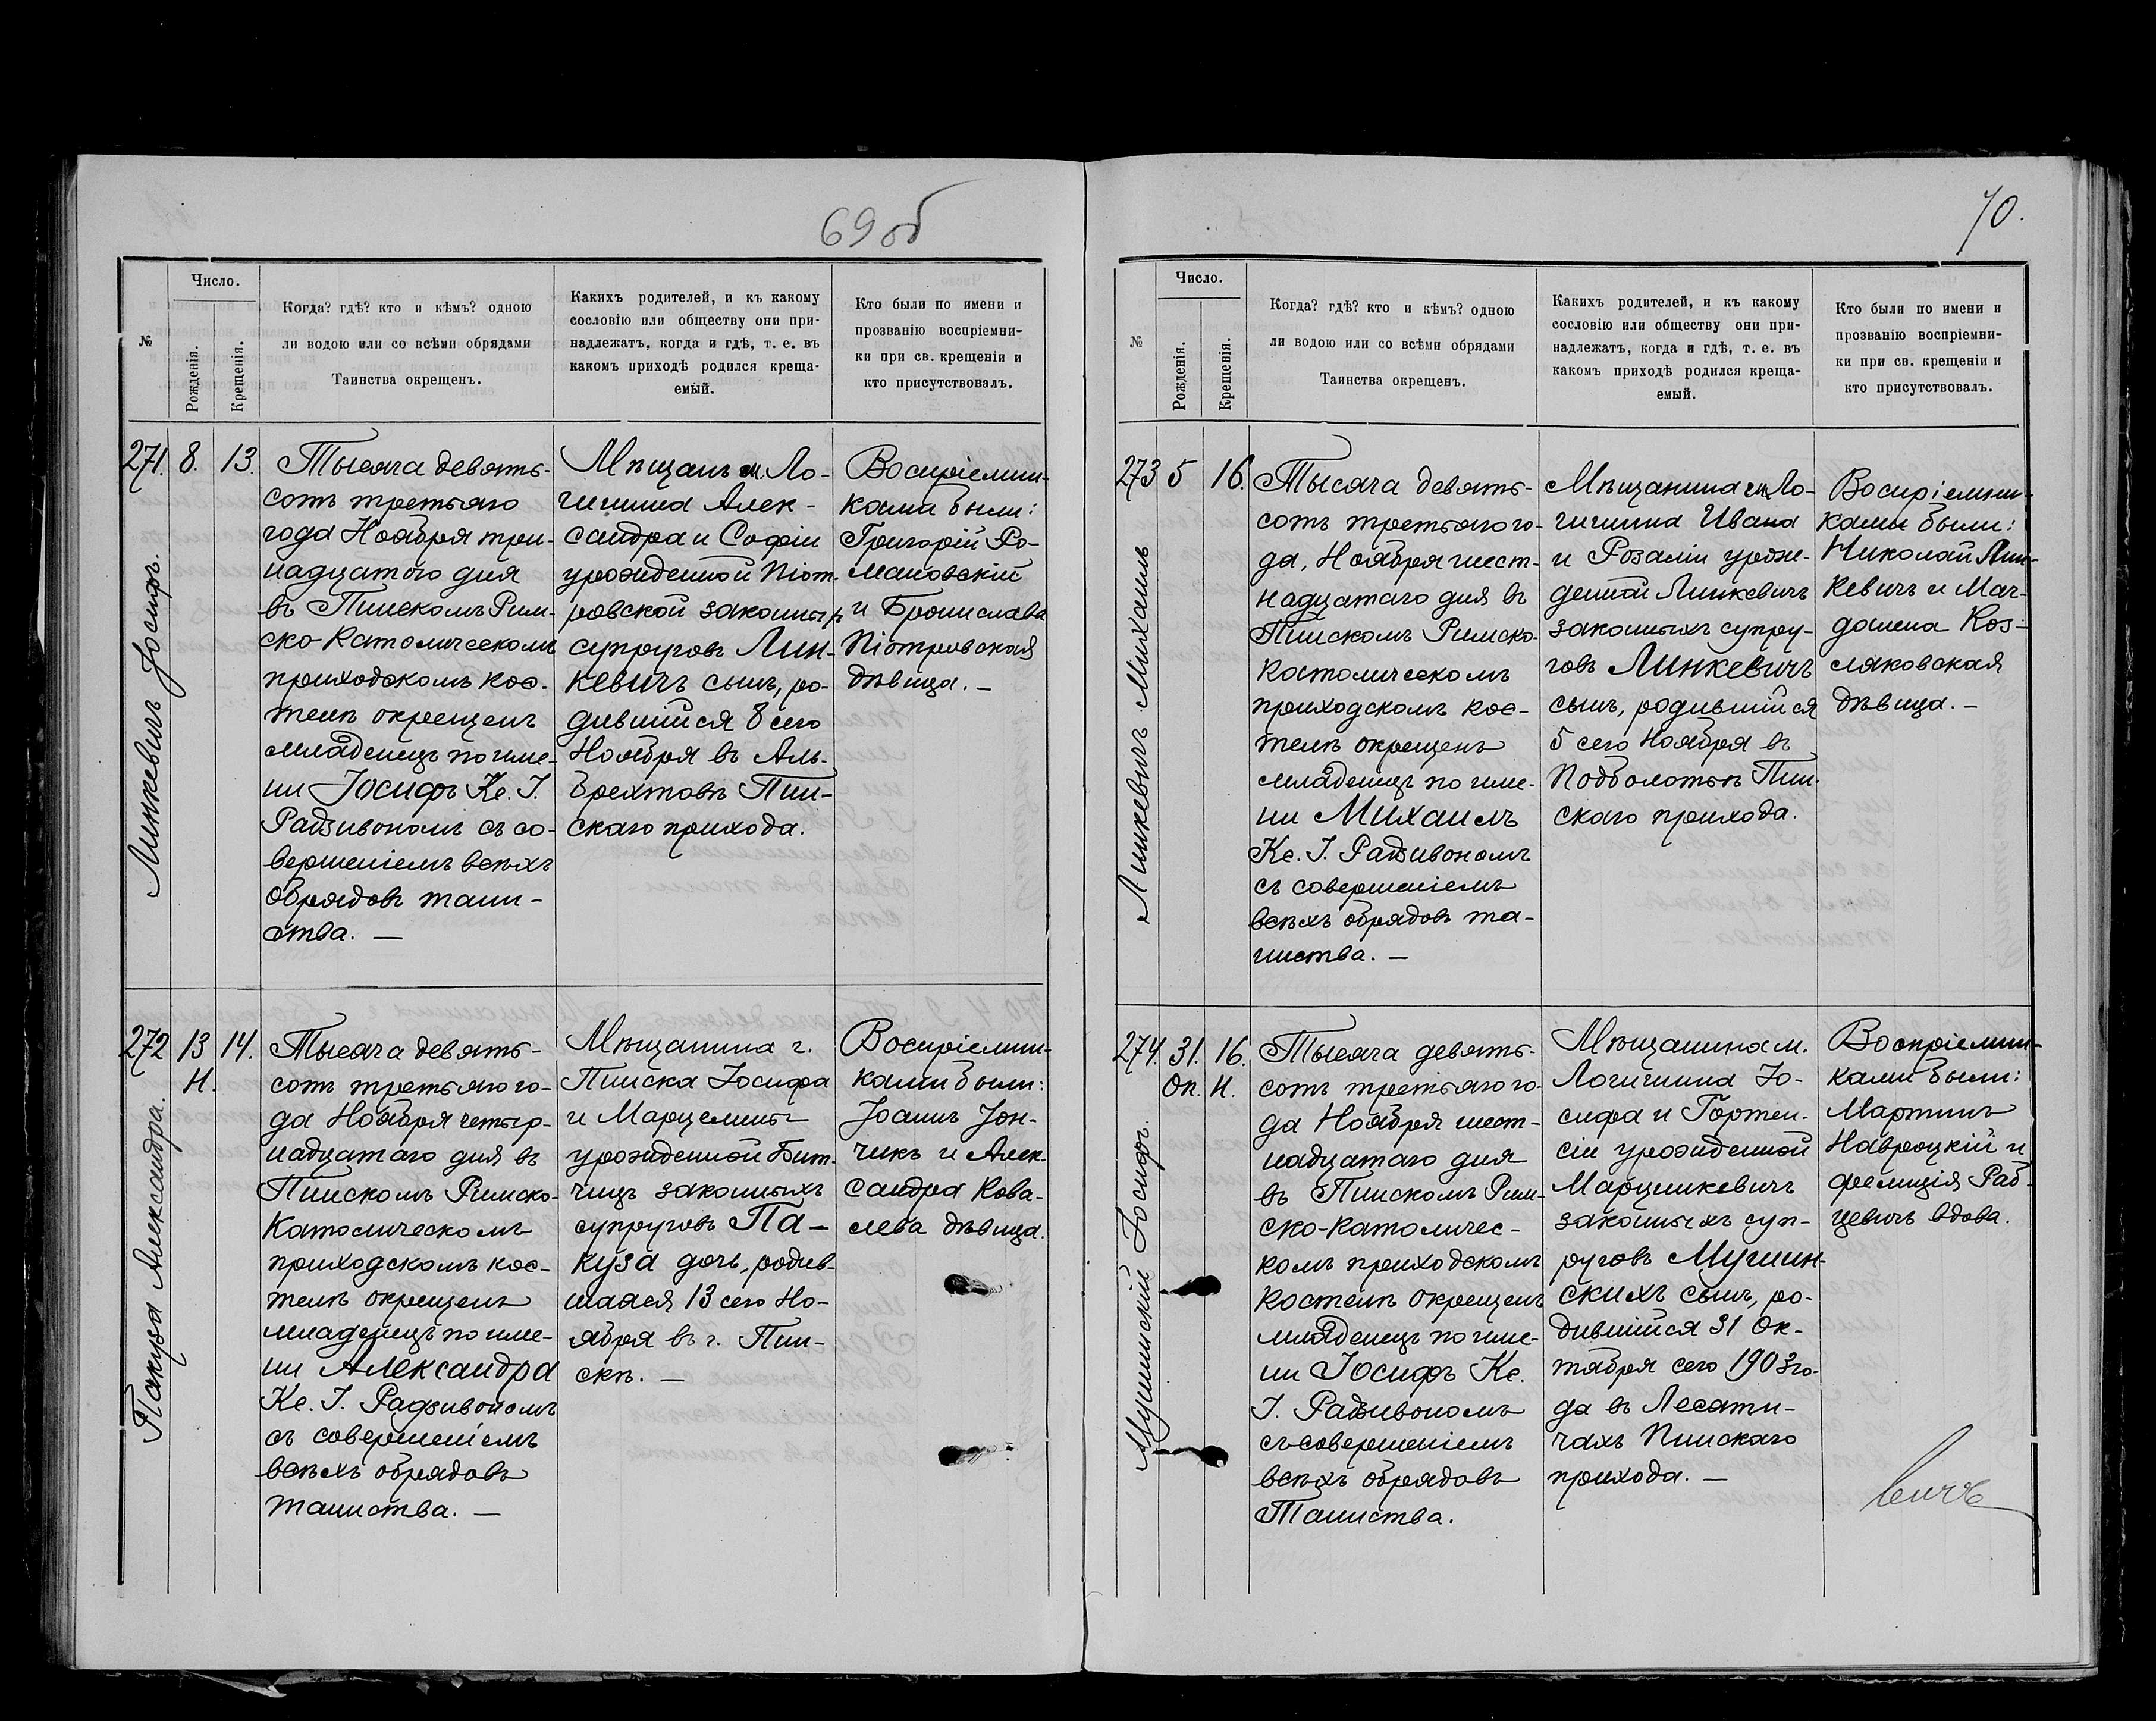 69об
№
Число.
Рожденія.
Крещенія.
Когда? гдѣ? кто и кѣмъ? одною
ли водою или со всѣми обрядами
Таинства окрещенъ.
Какихъ родителей, и къ какому
сословію или обществу они при-
надлежатъ, когда и гдѣ, т. е. въ
какомъ приходѣ родился креща-
емый.
Кто были по имени и
прозванію воспріемни-
ки при св. крещеніи и
кто присутствовалъ.
Линкевичъ Іосифъ.
271.
8.
13.
Тысяча девять-
сотъ третьяго
года Ноября три-
надцатого дня
въ Пинскомъ Рим-
ско-Католическомъ
приходскомъ кос-
телѣ окрещенъ
младенецъ по име-
ни Іосифъ Кс. І.
Радзивономъ съ со-
вершеніемъ всѣхъ
обрядовъ таин-
ства. —
Мѣщанъ м. Ло-
гишина Алек-
сандра и Софіи
урожденной Піот-
ровской законных
супруговъ Лин-
кевичъ сынъ, ро-
дившійся 8 сего
Ноября въ Аль-
брехтовѣ Пин-
скаго прихода.
Воспріемни-
ками были:
Григорій Ро-
мановскій
и Бронислава
Піотровская
дѣвица. —
Пакуза Александра.
272
13
Н.
14.
Тысяча девять-
сотъ третьяго го-
да Ноября четыр-
надцатаго дня въ
Пинскомъ Римско-
Католическомъ
приходскомъ кос-
телѣ окрещенъ
младенецъ по име-
ни Александра
Кс. І. Радзивономъ
съ совершеніемъ
всѣхъ обрядовъ
таинства. —
Мѣщанина г.
Пинска Іосифа
и Марцелины
урожденной Бит-
чицъ законныхъ
супруговъ Па-
куза дочь, родив-
шаяся 13 сего Но-
ября въ г. Пин-
скѣ. —
Воспріемни-
ками были:
Іоаннъ Іон-
чикъ и Алек-
сандра Кова-
лева дѣвица.
70.
№
Число.
Рожденія.
Крещенія.
Когда? гдѣ? кто и кѣмъ? одною
ли водою или со всѣми обрядами
Таинства окрещенъ.
Какихъ родителей, и къ какому
сословію или обществу они при-
надлежатъ, когда и гдѣ, т. е. въ
какомъ приходѣ родился креща-
емый.
Кто были по имени и
прозванію воспріемни-
ки при св. крещеніи и
кто присутствовалъ.
Линкевичъ Михаилъ
273
5
16.
Тысяча девять-
сотъ третьяго го-
да, Ноября шест-
надцатаго дня въ
Пинскомъ Римско-
Католическомъ
приходскомъ кос-
телѣ окрещенъ
младенецъ по име-
ни Михаилъ
Кс. І. Радзивономъ
съ совершеніемъ
всѣхъ обрядовъ та-
инства. —
Мѣщанина м. Ло-
гишина Ивана
и Розаліи урож-
денной Линкевичъ
законныхъ супру-
говъ Линкевичъ
сынъ, родившійся
5 сего Ноября въ
Подболотьѣ Пин-
скаго прихода.
Воспріемни-
ками были:
Николай Лин-
кевичъ и Маг-
далена Коз-
ляковская
дѣвица. —
Мушинскій Іосифъ.
274.
31.
Ок.
16.
Н.
Тысяча девять-
сотъ третьяго го-
да Ноября шест-
надцатаго дня
въ Пинскомъ Рим-
ско-Католичес-
комъ приходскомъ
костелѣ окрещенъ
младенецъ по име-
ни Іосифъ Кс.
І. Радзивономъ
съ совершеніемъ
всѣхъ обрядовъ
Таинства.
Мѣщанина м.
Логишина Іо-
сифа и Гортен-
сіи урожденной
Марцинкевичъ
законныхъ суп-
руговъ Мушин-
скихъ сынъ, ро-
дившійся 31 Ок-
тября сего 1903 го-
да въ Лесати-
чахъ Пинскаго
прихода. —
Воспріемни-
ками были:
Мартинъ
Навроцкій и
Фелиція Раб-
цевичъ вдова.
вичъ